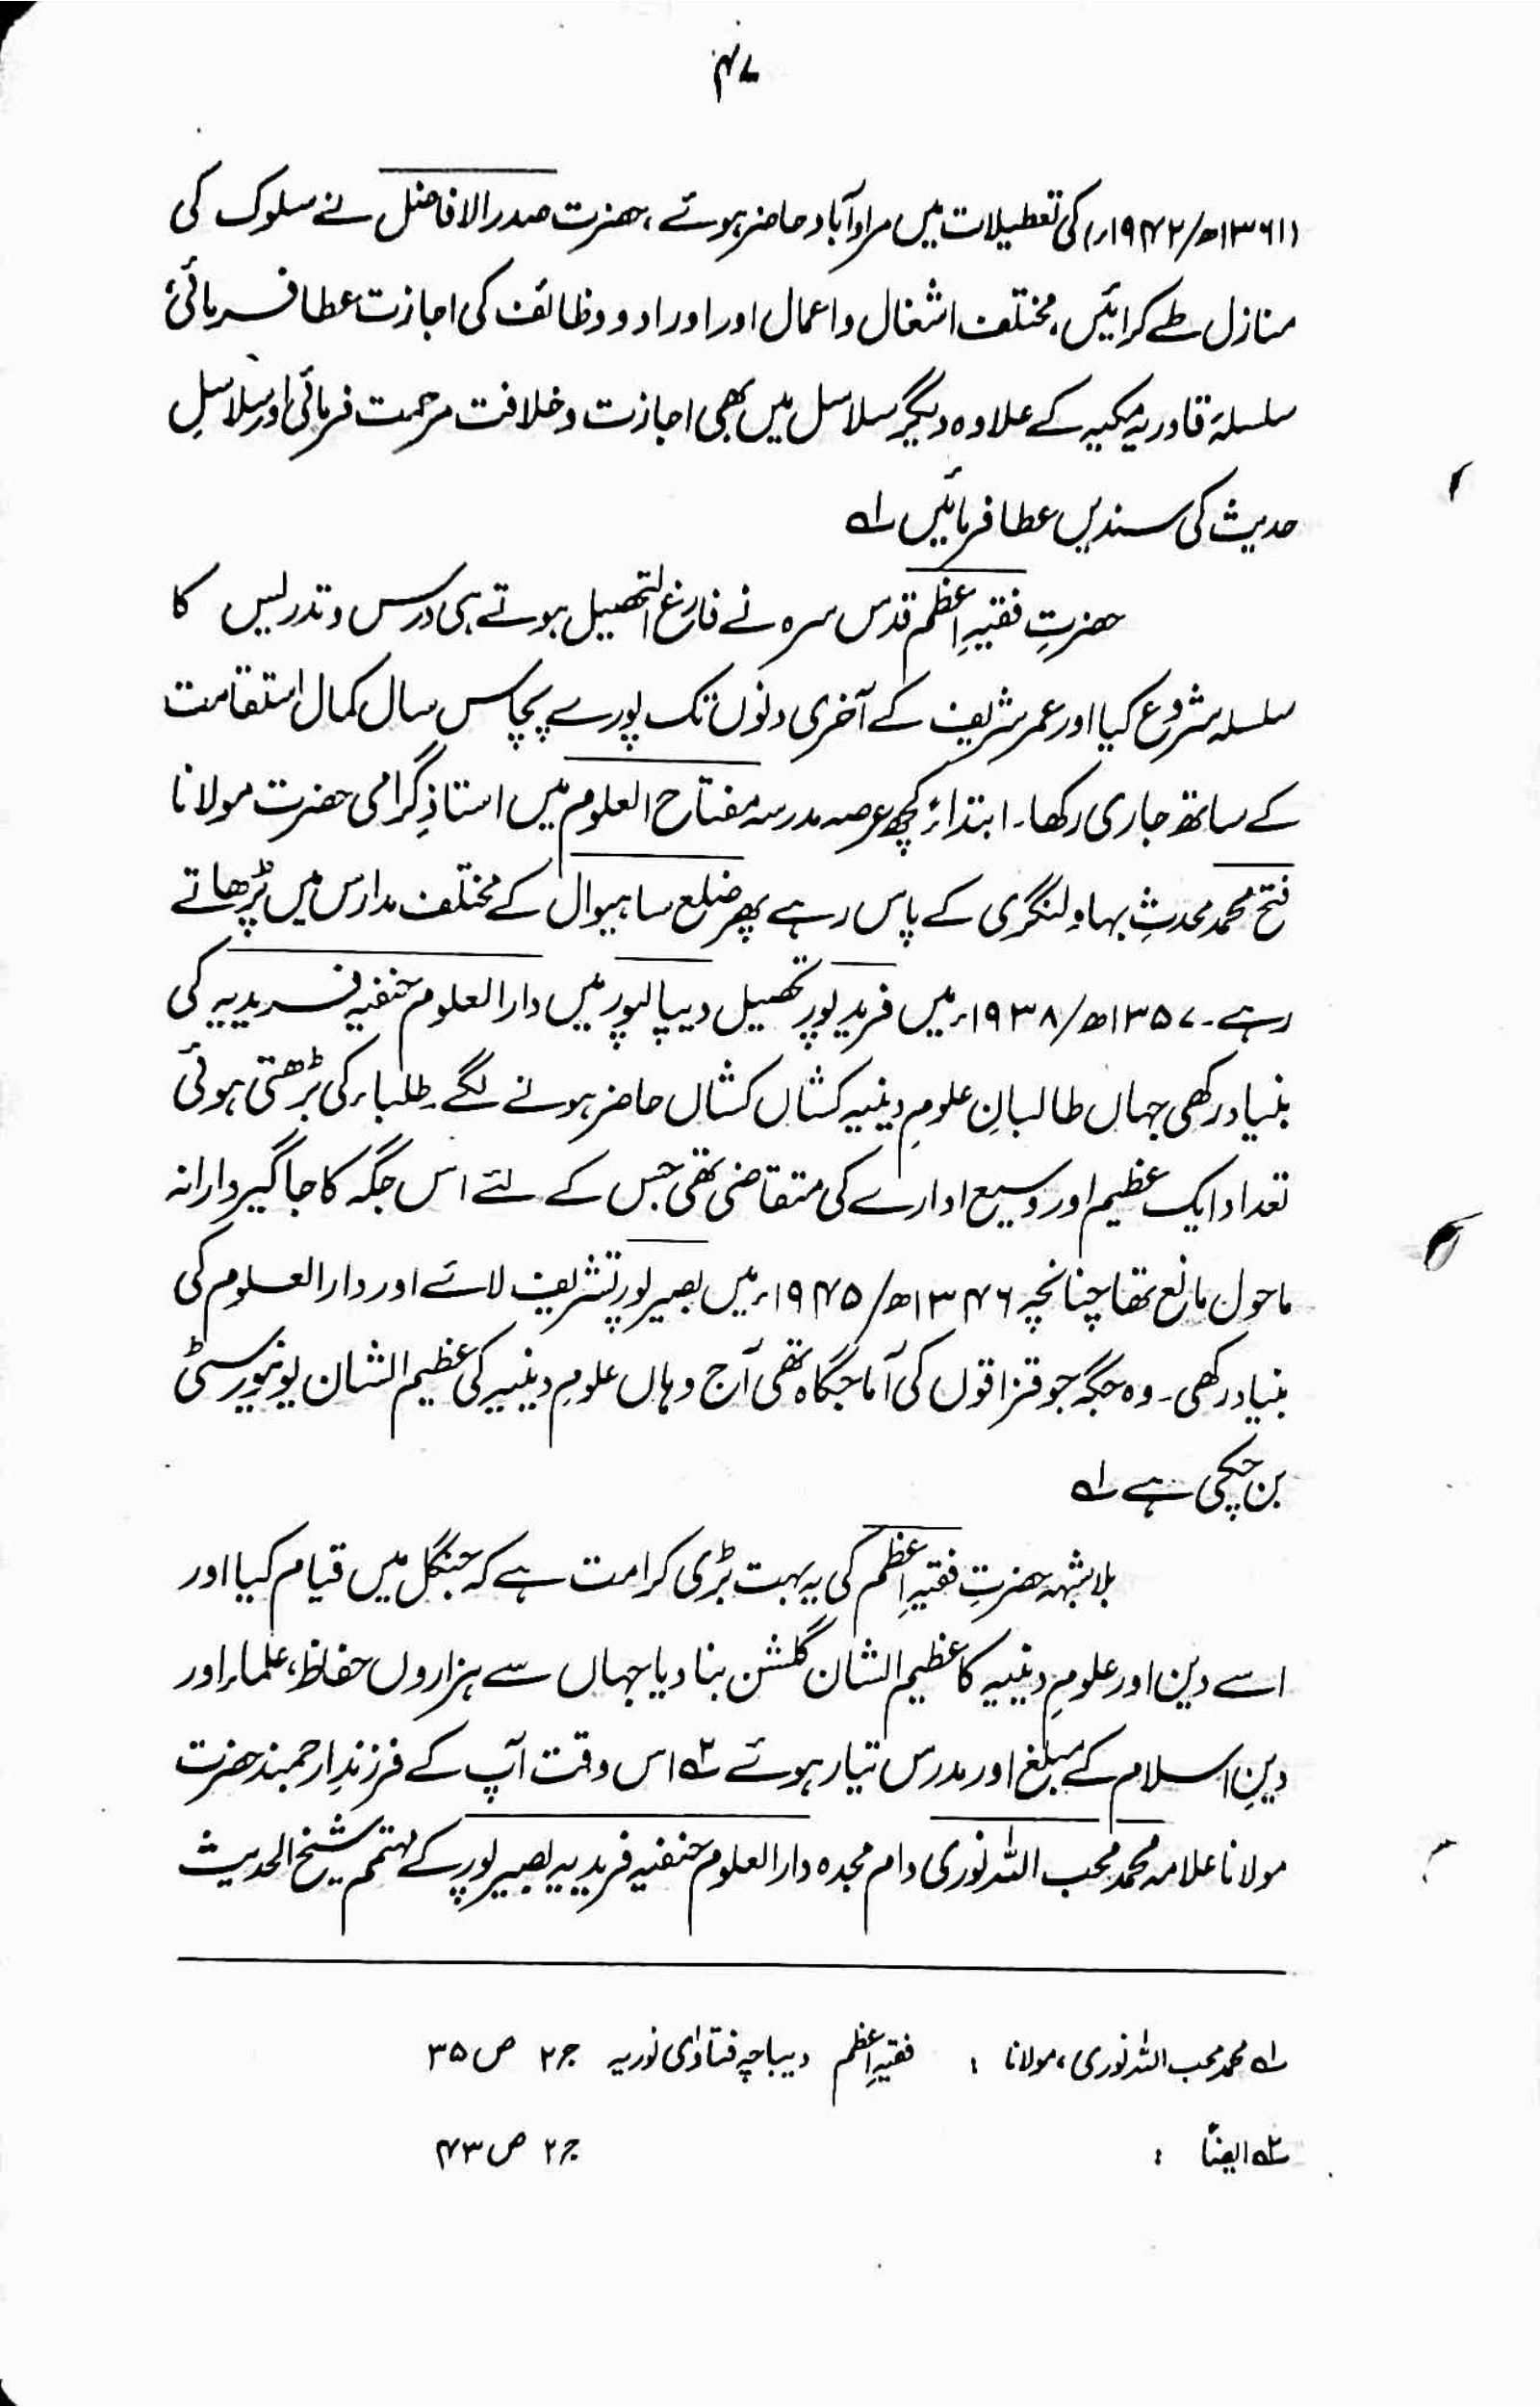 ۴۷
(۱۳۶۱ھ/۱۹۴۲ء) کی تعطیلات میں مرادآباد حاضر ہوئے، حضرت صدر الافاضل نے سلوک کی
منازل طے کرائیں، مختلف اشغال و اعمال اور اوراد و وظائف کی اجازت عطا فرمائی
سلسلۂ قادریہ مکیہ کے علاوہ دیگر سلاسل میں بھی اجازت و خلافت مرحمت فرمائی اور سلاسلِ
حدیث کی سندیں عطا فرمائیں لہ
حضرتِ فقیہِ اعظم قدس سرہ نے فارغ التحصیل ہوتے ہی درس و تدریس کا
سلسلہ شروع کیا اور عمر شریف کے آخری دنوں تک پورے پچاس سال کمال استقامت
کے ساتھ جاری رکھا۔ ابتداءً کچھ عرصہ مدرسہ مفتاح العلوم میں استاذِ گرامی حضرت مولانا
فتح محمد محدثِ بہاولنگری کے پاس رہے پھر ضلع ساہیوال کے مختلف مدارس میں پڑھاتے
رہے۔ ۱۳۵۷ھ/۱۹۳۸ء میں فرید پور تحصیل دیپالپور میں دارالعلوم حنفیہ فریدیہ کی
بنیاد رکھی جہاں طالبانِ علومِ دینیہ کشاں کشاں حاضر ہونے لگے۔ طلباء کی بڑھتی ہوئی
تعداد ایک عظیم اور وسیع ادارے کی متقاضی تھی جس کے لئے اس جگہ کا جاگیردارانہ
ماحول مانع تھا چنانچہ ۱۳۴۶ھ/۱۹۴۵ء میں بصیرپور تشریف لائے اور دارالعلوم کی
بنیاد رکھی۔ وہ جگہ جو قزاقوں کی آماجگاہ تھی آج وہاں علومِ دینیہ کی عظیم الشان یونیورسٹی
بن چکی ہے لہ
بلاشبہہ حضرتِ فقیہِ اعظم کی یہ بہت بڑی کرامت ہے کہ جنگل میں قیام کیا اور
اسے دین اور علومِ دینیہ کا عظیم الشان گلشن بنا دیا جہاں سے ہزاروں حفاظ، علماء اور
دینِ اسلام کے مبلغ اور مدرس تیار ہوئے ۲؎ اس وقت آپ کے فرزندِ ارجمند حضرت
مولانا علامہ محمد محب اللہ نوری دام مجدہ دارالعلوم حنفیہ فریدیہ بصیرپور کے مہتمم شیخ الحدیث
لہ محمد محب اللہ نوری، مولانا : فقیہِ اعظم دیباچہ فتاوٰی نوریہ ج۲ ص ۳۵
۲؎ ایضاً : ج۲ ص ۴۳